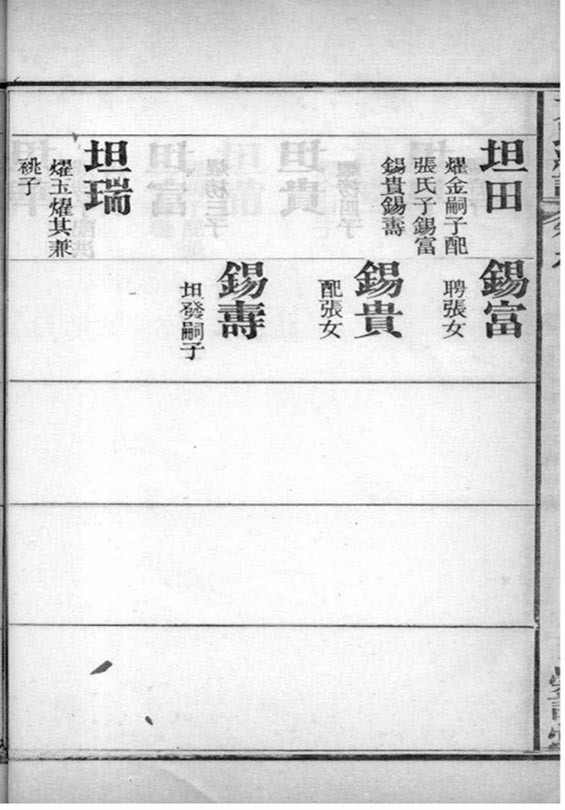 坦田
燿金嗣子配
張氏子錫富
錫貴錫壽
坦瑞
燿玉燿其兼
祧子
錫富
聘張女
錫貴
配張女
錫壽
坦發嗣子